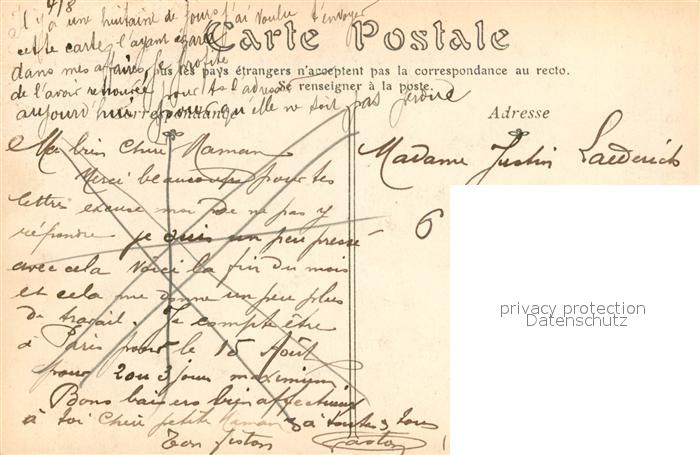 4/8
il y a une huitaine de jours j'ai voulu t'envoyer
cette carte l'ayant égaré
dans mes affaires, je profite
de l'avoir retrouvée pour te l'adresser
aujourd'hui pour qu'elle ne soit pas perdue
Carte Postale
Tous les pays étrangers n'acceptent pas la correspondance au recto.
Se renseigner à la poste.
Correspondance
Adresse
Ma bien chère Maman
Merci beaucoup pour tes
lettres excuse moi de ne pas y
répondre je suis un peu pressé
avec cela voici la fin du mois
et cela me donne un peu plus
de travail. Je compte être
à Paris pour le 15 Août
pour 2 ou 3 jours maximum
Bons baisers bien affectueux
à toi chère petite Maman à toutes 3 tous
Ton fiston Gaston
Madame Justin Laederich
6
privacy protection
Datenschutz